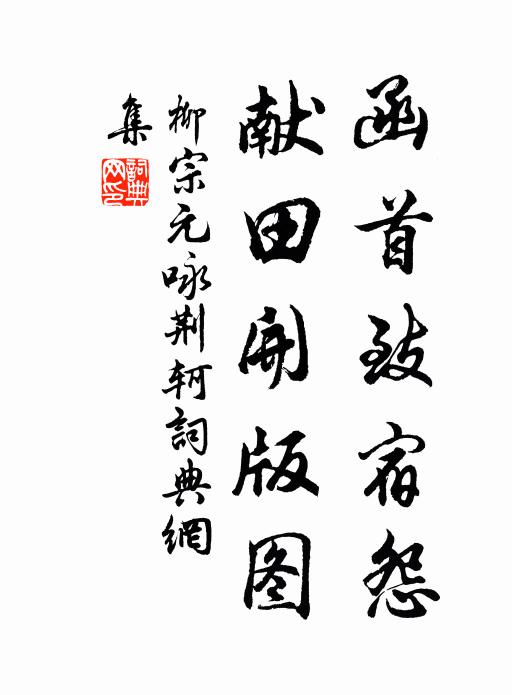 函首致宿怨
献田开版图
柳宗元咏荆轲詞典網
集
詞典网印